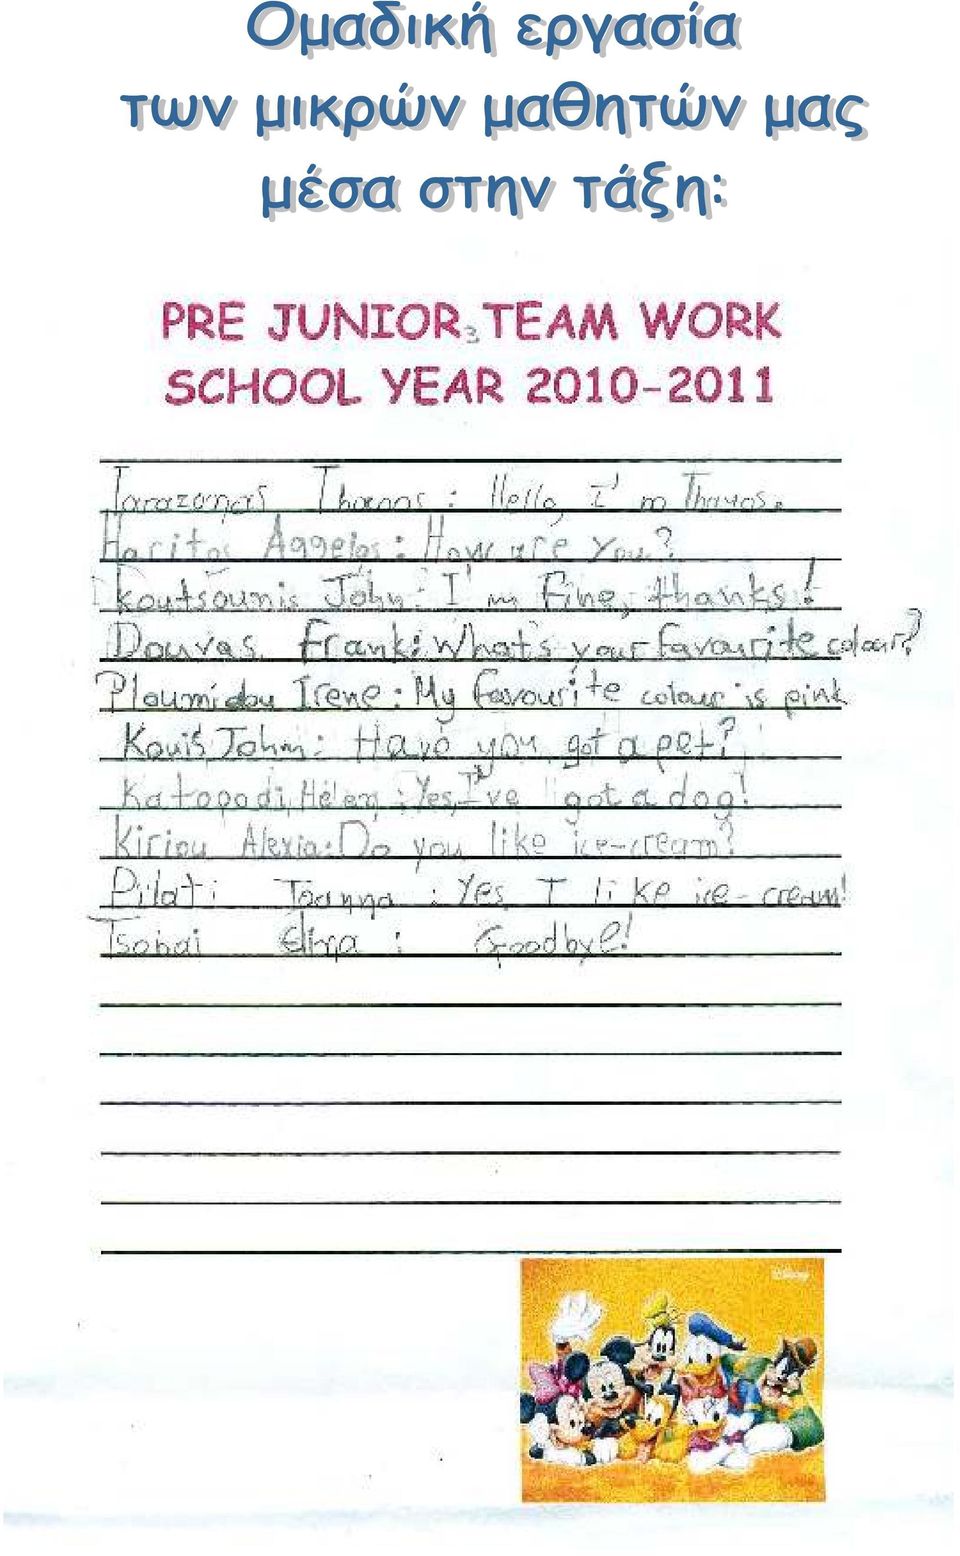 Ομαδική εργασία
των μικρών μαθητών μας
μέσα στην τάξη:
PRE JUNIOR 3 TEAM WORK
SCHOOL YEAR 2010-2011
Tarazonas Thanos: Hello, I'm Thanos.
Haritos Aggelos: How are you?
koutsounis John: I'm Fine, thanks!
Douvas Frank: What's your favourite colour?
Ploumidou Irene: My favourite colour is pink
Kouis John: Have you got a pet?
Katopodi Helen: Yes, I've got a dog!
Kiriou Alexia: Do you like ice-cream?
Pilati Ioanna: Yes I like ice-cream!
Tsobai Elina: Goodbye!
Disney